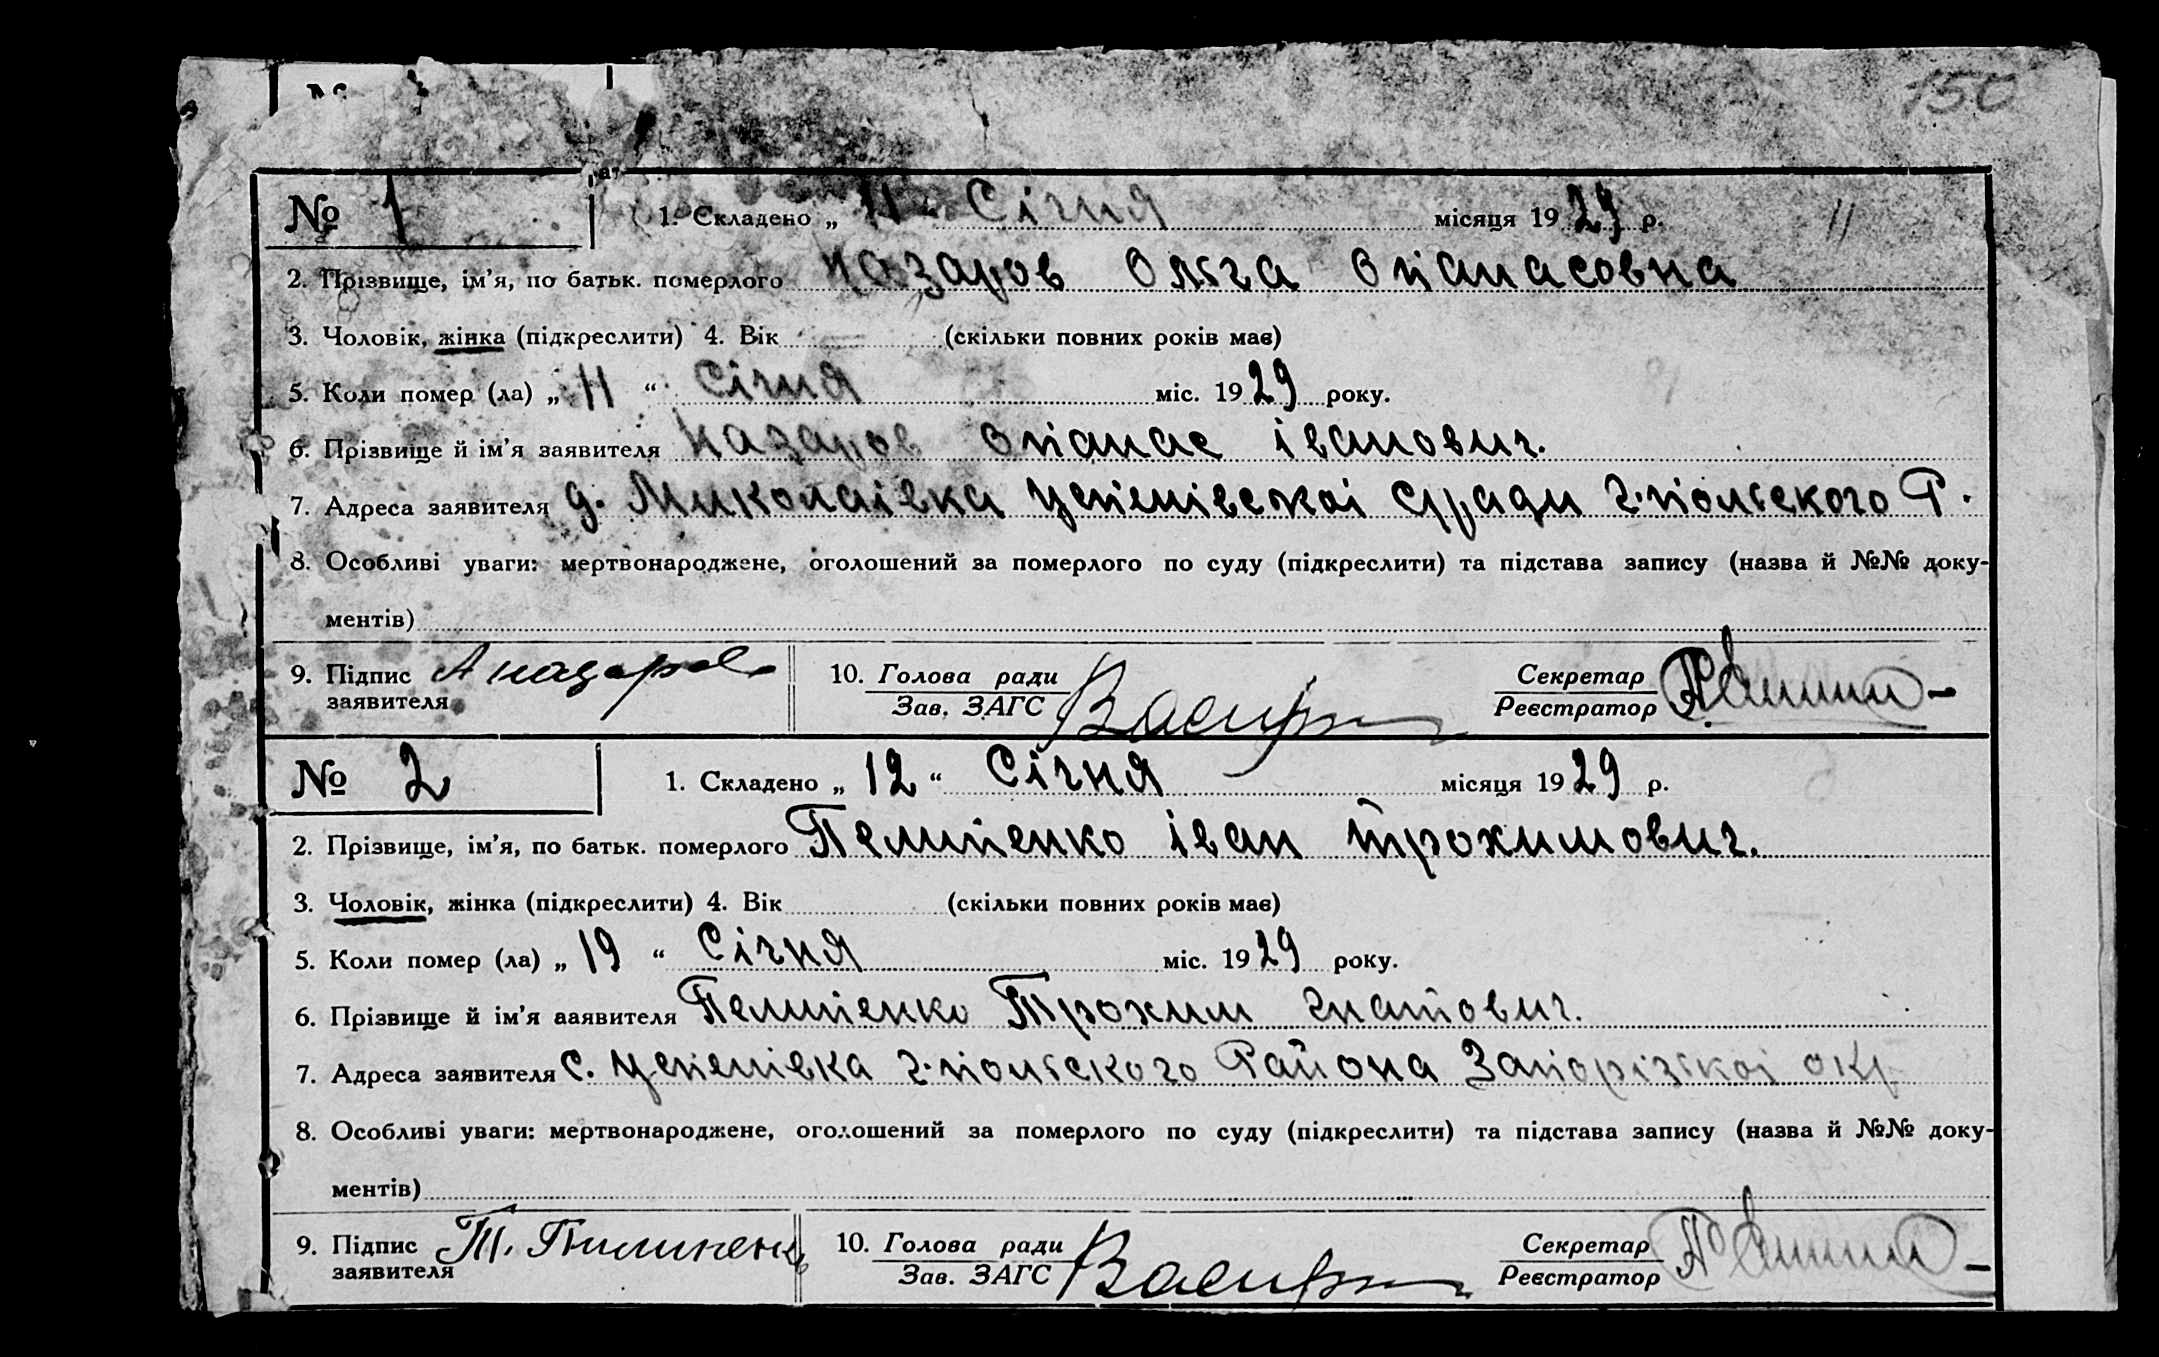 150
№ 1 1. Складено „ 11 “ Січня місяця 1929 р. 11
2. Прізвище, ім’я, по батьк. померлого Назаров Ольга Опанасовна
3. Чоловік, жінка (підкреслити) 4. Вік (скільки повних років має)
5. Коли помер (ла) „ 11 “ Січня міс. 1929 року.
6. Прізвище й ім’я заявителя Назаров Опанас Іванович.
7. Адреса заявителя д. Миколаівка Успенівскоі С/ради Г-польского Р.
8. Особливі уваги: мертвонароджене, оголошений за померлого по суду (підкреслити) та підстава запису (назва й №№ доку-
ментів)
9. Підпис А Назаров 10. Голова ради Секретар
заявителя Зав. ЗАГС Реєстратор
№ 2 1. Складено „ 12 “ Січня місяця 1929 р.
2. Прізвище, ім’я, по батьк. померлого Пелипенко Іван Трохимович.
3. Чоловік, жінка (підкреслити) 4. Вік (скільки повних років має)
5. Коли помер (ла) „ 19 “ Січня міс. 1929 року.
6. Прізвище й ім’я заявителя Пелипенко Трохим Гнатович.
7. Адреса заявителя с. Успенівка Г-польского Района Запорізкоі окр
8. Особливі уваги: мертвонароджене, оголошений за померлого по суду (підкреслити) та підстава запису (назва й №№ доку-
ментів)
9. Підпис Т. Пилипенко 10. Голова ради Секретар
заявителя Зав. ЗАГС Реєстратор